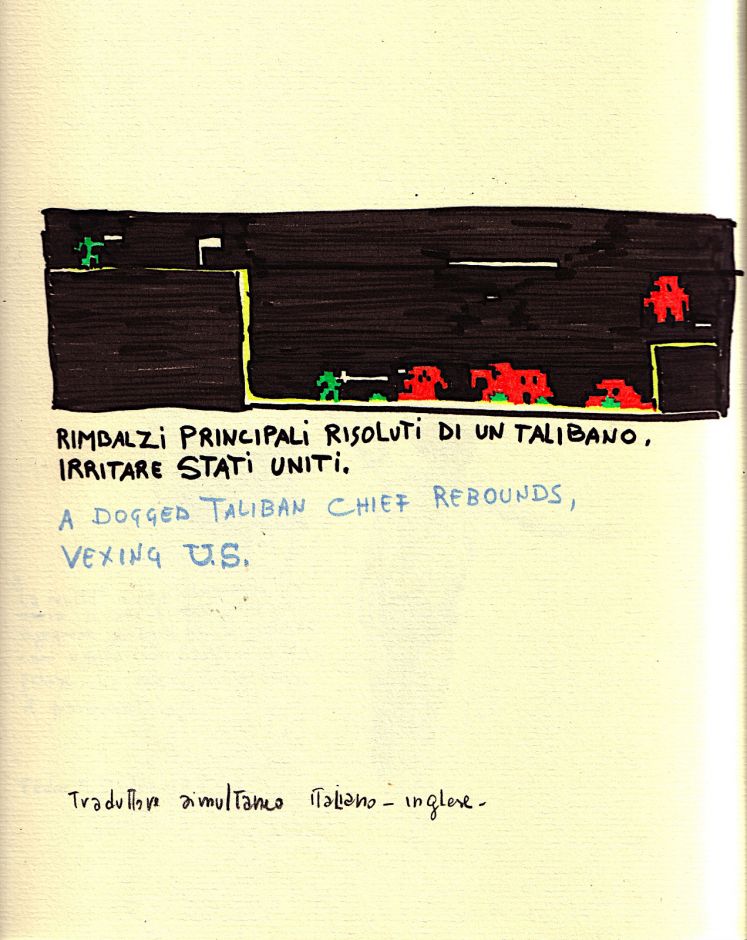 RIMBALZI PRINCIPALI RISOLUTI DI UN TALIBANO.
IRRITARE STATI UNITI.
A DOGGED TALIBAN CHIEF REBOUNDS,
VEXING U.S.
Traduttore simultaneo italiano - inglese -